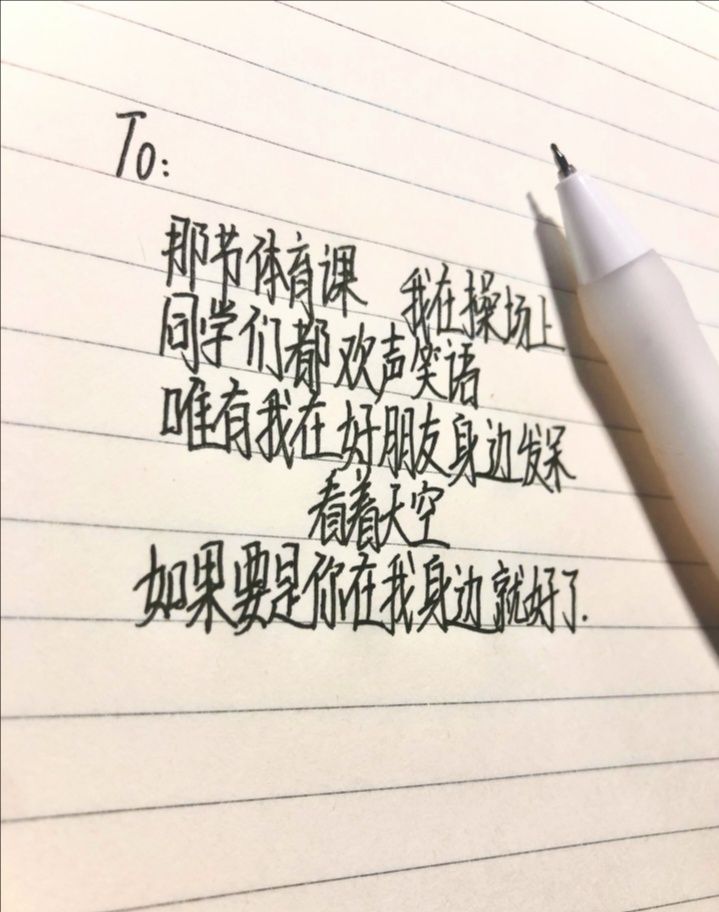 To:
那节体育课 我在操场上
同学们都欢声笑语
唯有我在好朋友身边发呆
看着天空
如果要是你在我身边就好了.